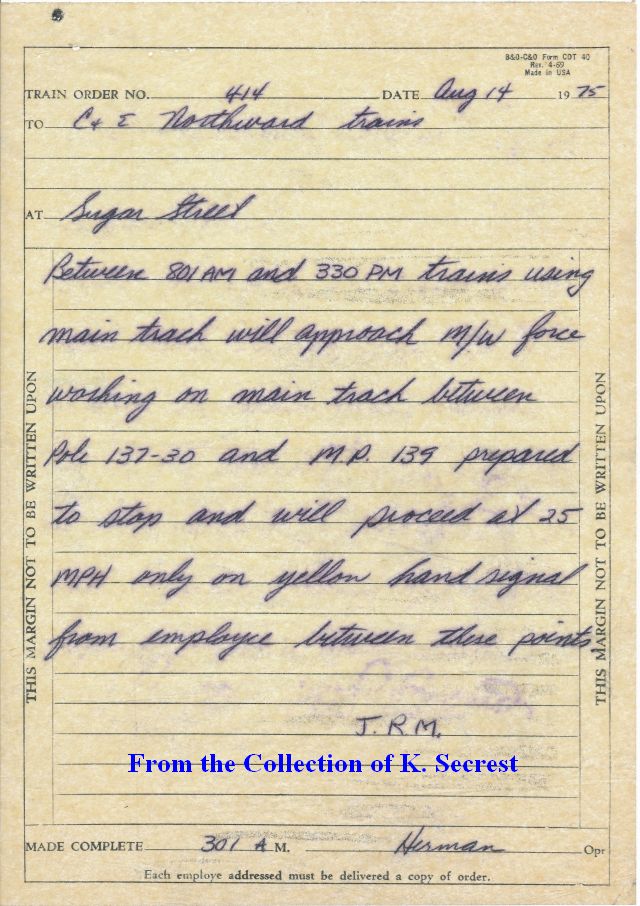 B&O-C&O Form CDT 40
Rev. 4-69
Made in USA
TRAIN ORDER NO. 414 DATE Aug 14 1975
TO C & E Northward trains
AT Sugar Street
Between 801 AM and 330 PM trains using
main track will approach M/W force
working on main track between
Pole 137-30 and M.P. 139 prepared
to stop and will proceed at 25
MPH only on yellow hand signal
from employee between these points
J.R.M.
From the Collection of K. Secrest
MADE COMPLETE 301 A M. Herman Opr
Each employe addressed must be delivered a copy of order.
THIS MARGIN NOT TO BE WRITTEN UPON
THIS MARGIN NOT TO BE WRITTEN UPON